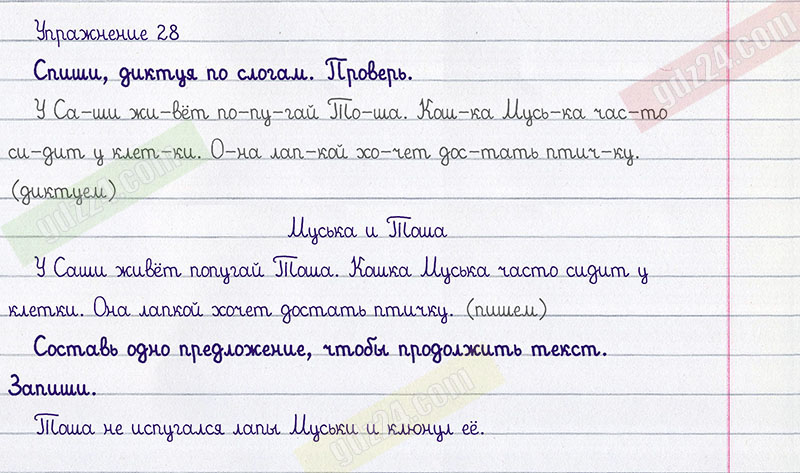 Упражнение 28
Спиши, диктуя по слогам. Проверь.
У Са-ши жи-вёт по-пу-гай То-ша. Кош-ка Мусь-ка час-то
си-дит у клет-ки. О-на лап-кой хо-чет дос-тать птич-ку.
(диктуем)
Муська и Таша
У Саши живёт попугай Таша. Кошка Муська часто сидит у
клетки. Она лапкой хочет достать птичку. (пишем)
Составь одно предложение, чтобы продолжить текст.
Запиши.
Таша не испугался лапы Муськи и клюнул её.
gdz24.com
gdz24.com
gdz24.com